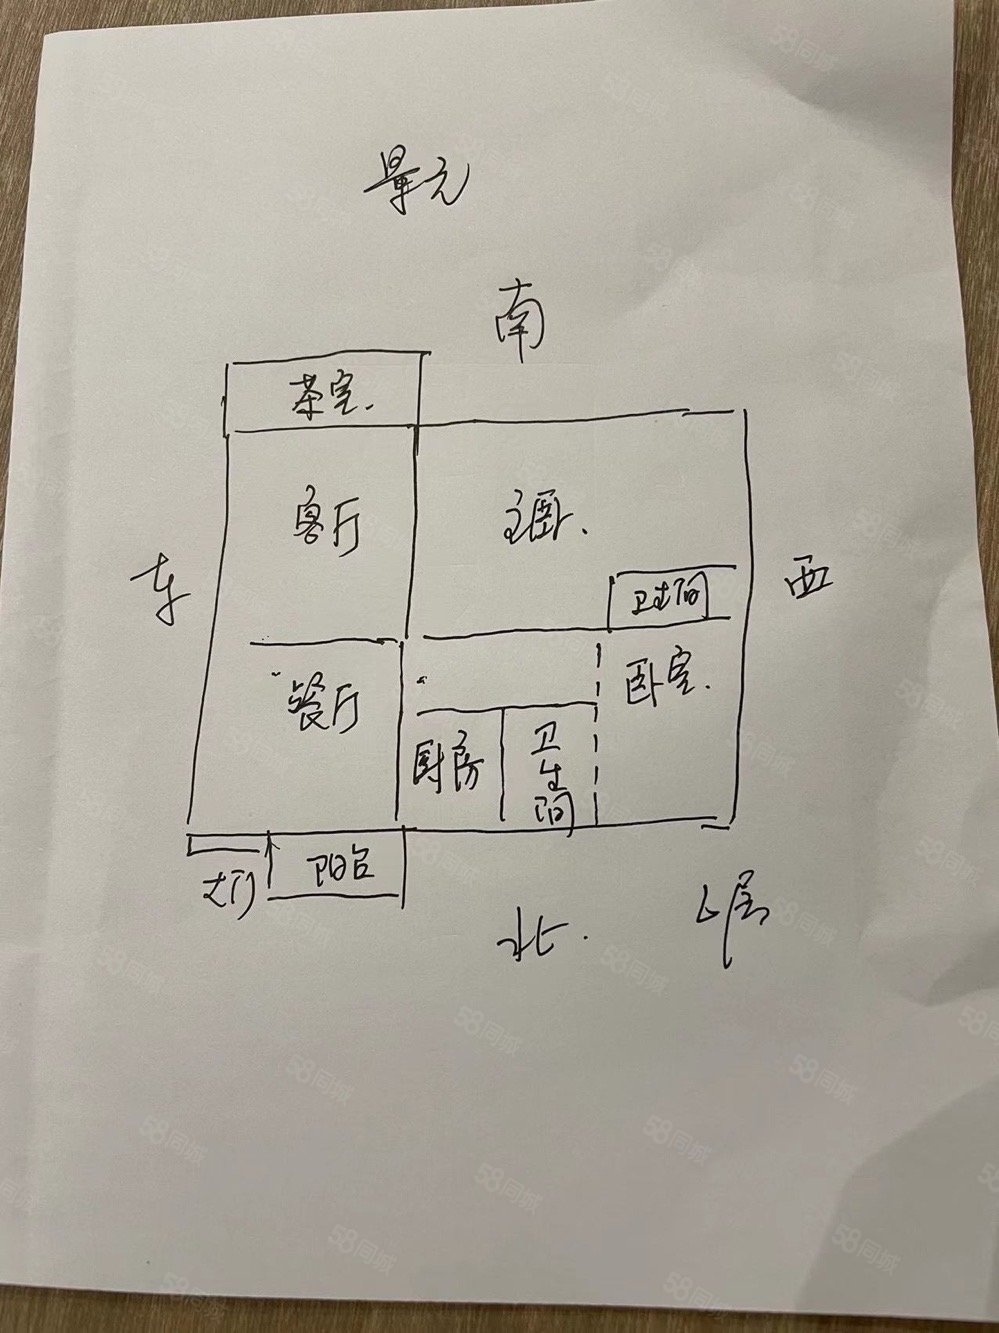 单元
南
茶室.
客厅
主卧.
东
西
卫生间
餐厅
卧室.
厨房
卫
生
间
阳台
大门
北.
58同城